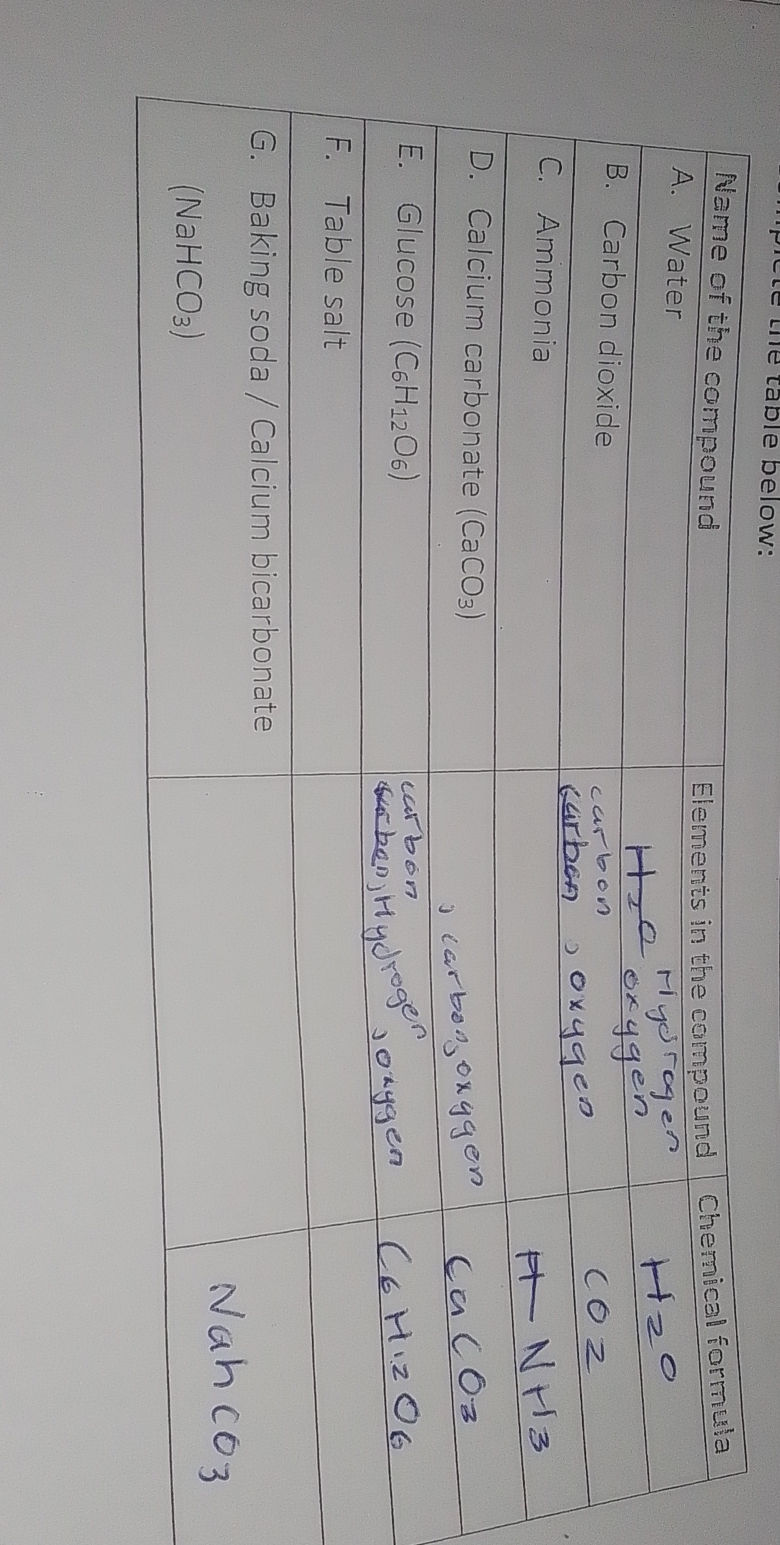 the table below:
Name of the compound Elements in the compound Chemical formula
A. Water H2O Hydrogen oxygen H2O
B. Carbon dioxide carbon carbon , oxygen CO2
C. Ammonia H NH3
D. Calcium carbonate (CaCO₃) , carbon, oxygen CaCO3
E. Glucose (C₆H₁₂O₆) carbon carbon, Hydrogen , oxygen C6H12O6
F. Table salt
G. Baking soda / Calcium bicarbonate
(NaHCO₃) NahCO3